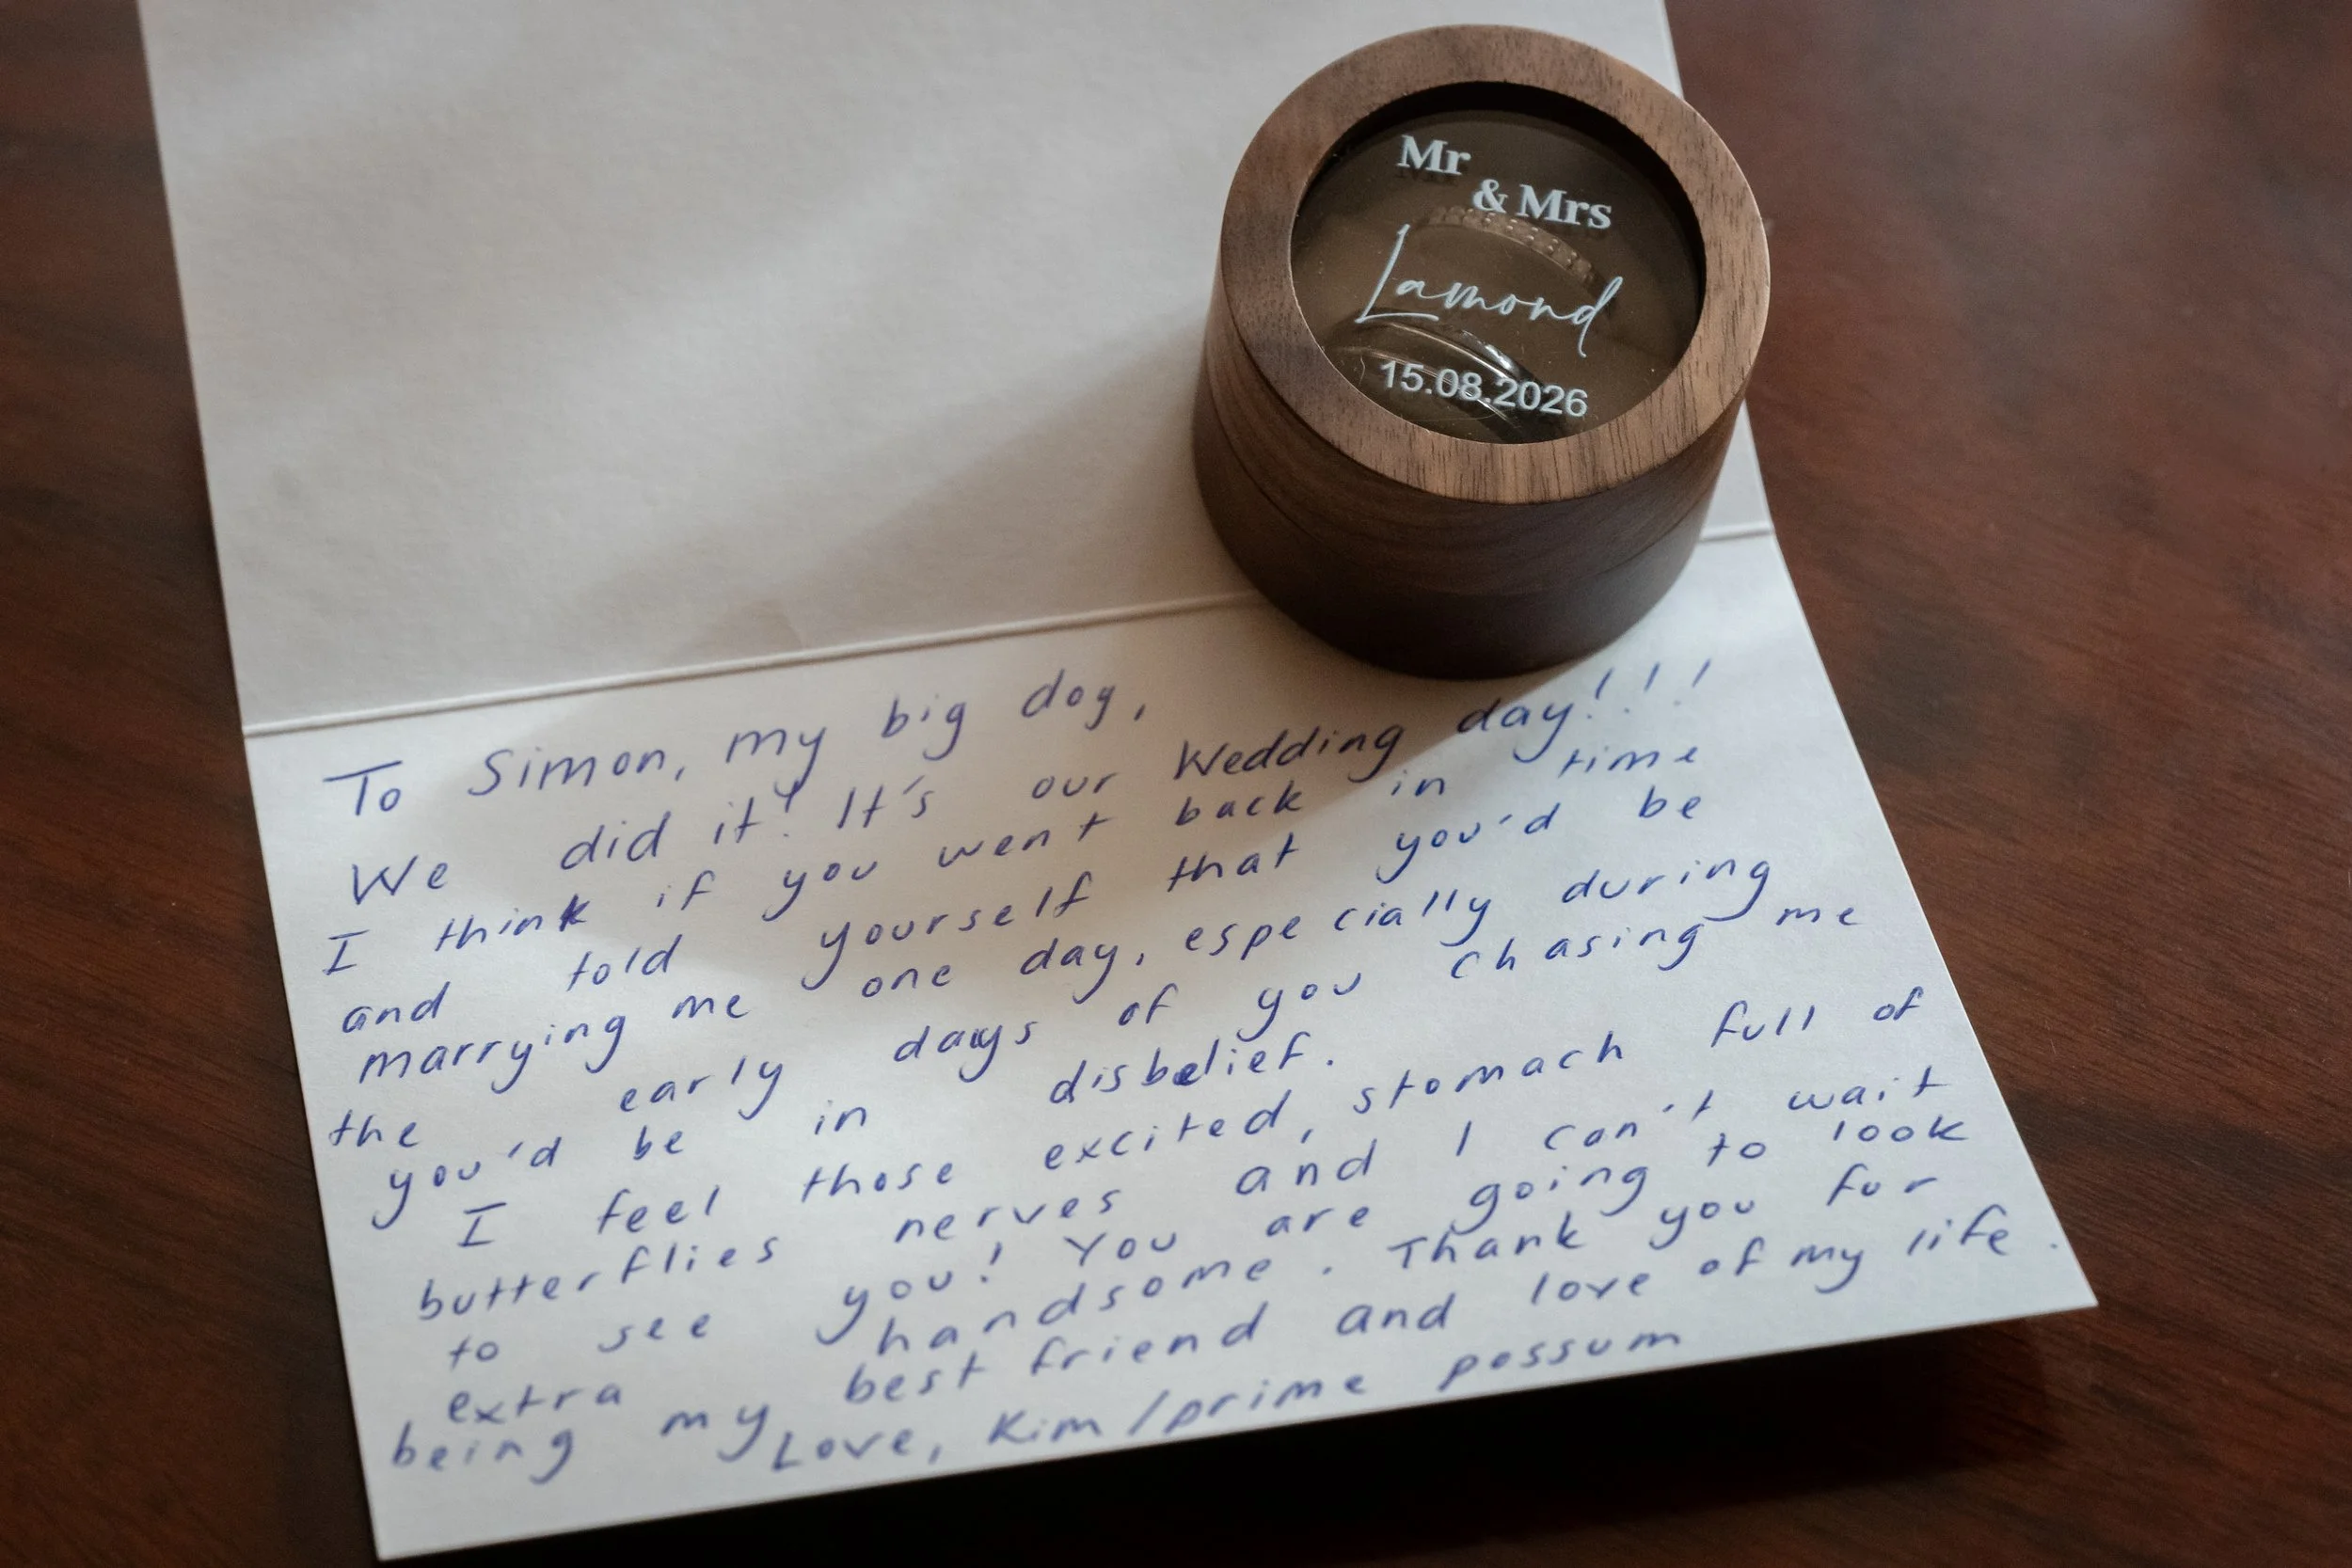 Mr
& Mrs
Lamond
15.08.2026
To Simon, my big dog,
We did it! It's our Wedding day!!!
I think if you went back in time
and told yourself that you'd be
marrying me one day, especially during
the early days of you chasing me
you'd be in disbelief.
I feel those excited, stomach full of
butterflies nerves and I can't wait
to see you! You are going to look
extra handsome. Thank you for
being my best friend and love of my life.
Love, Kim/prime possum